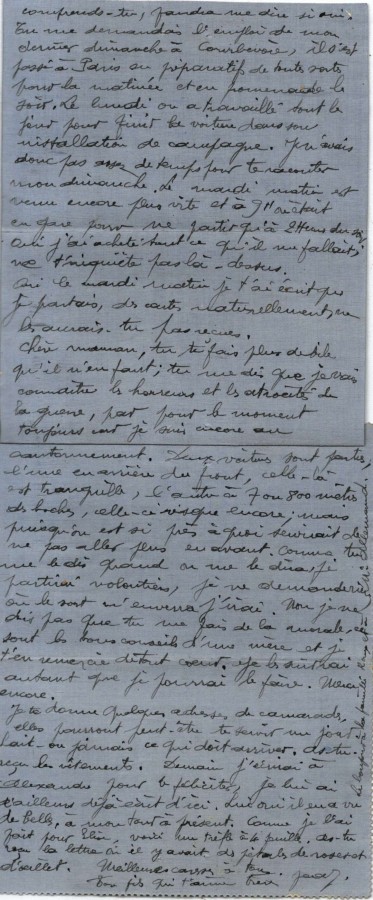 comprends-tu, faudra me dire si oui.
Tu me demandais l'emploi de mon
dernier dimanche à Courbevoie, il s'est
passé à Paris en préparatifs de toutes sortes
pour la matinée et en promenade le
soir. Le lundi on a travaillé tout le
jour pour finir la voiture dans son
installation de campagne. Je n'avais
donc pas assez de temps pour te raconter
mon dimanche. Le mardi matin est
venu encore plus vite et à 9H on était
en gare pour ne partir qu'à 2 heures du soir
Oui j'ai acheté tout ce qu'il me fallait,
ne t'inquiète pas là-dessus.
Oui le mardi matin je t'ai écrit que
je partais, des cartes naturellement, ne
les aurais-tu pas reçues.
Chère maman, tu te fais plus de bile
qu'il n'en faut; tu me dis que je vais
connaître les horreurs et les atrocités de
la guerre, pas pour le moment
toujours car je suis encore au
cantonnement. Deux voitures sont parties,
l'une en arrière du front, celle-là
est tranquille, l'autre à 7 ou 800 mètres
des boches, celle-ci risque encore; mais
puisqu'on est si près à quoi servirait de
ne pas aller plus en avant. Comme tu
me le dis quand on me le dira, je
partirai volontiers, je ne demanderai
où le sort m'enverra j'irai. Non je ne
dis pas que tu me fais de la morale, ce
sont les bons conseils d'une mère et je
t'en remercie de tout cœur. Je les suivrai
autant que je pourrai le faire. Merci
encore.
Je te donne quelques adresses de camarades,
elles pourront peut-être te servir un jour
sait-on jamais ce qui doit arriver. As-tu
reçu les vêtements. Demain j'écrirai à
Alexandre pour le féliciter, je lui ai
d'ailleurs déjà écrit d'ici. Lui qui il en a vu
de belles, à mon tour à présent. Comme je l'ai
fait pour Elie, voici un trèfle à 4 feuilles. As-tu
reçu la lettre où il y avait des pétales de roses et
d'œillet. Meilleures caresses à tous.
Ton fils qui t'aime bien
le bonjour à la famille